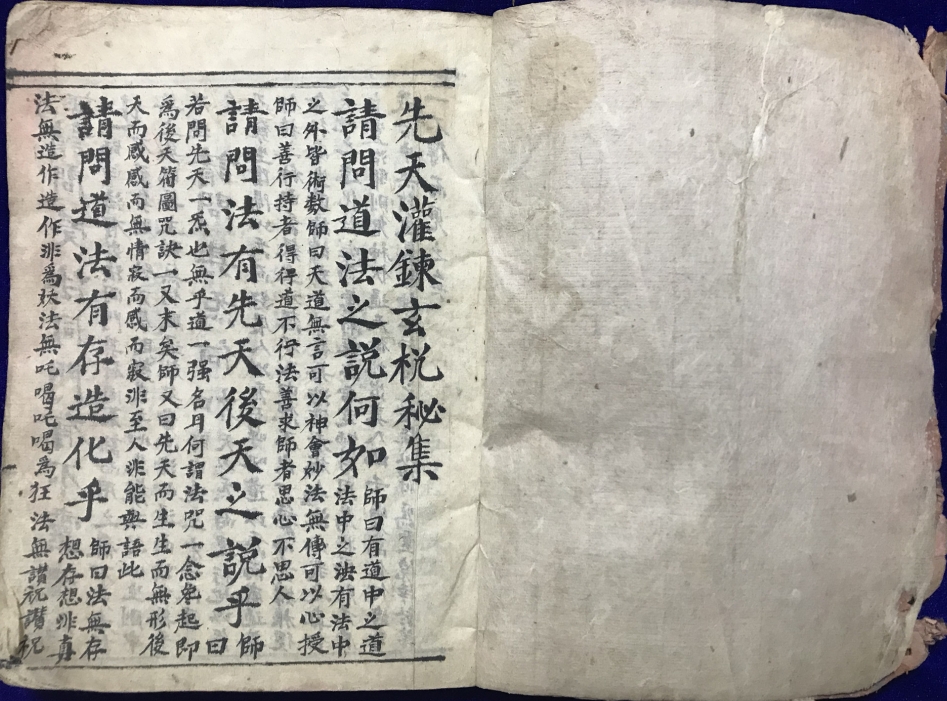 先天灌鍊玄柷秘集
請問道法之說何如師曰有道中之道法中之法有法中
之外皆術數師曰天道無言可以神會妙法無傳可以心授
師曰善行持者得得道不行法善求師者思心不思人
請問法有先天後天之說乎師曰
若問先天一炁也無乎道一强名曰何謂法咒一念纔起即
為後天符圖咒訣一又末矣師又曰先天而生生而無形後
天而感感而無情寂而感而寂非至人非能與語此
請問道法有存造化乎師曰法無存想存想非真
法無造作造作非為妖法無吒喝吒喝為狂法無讃祝讃祝